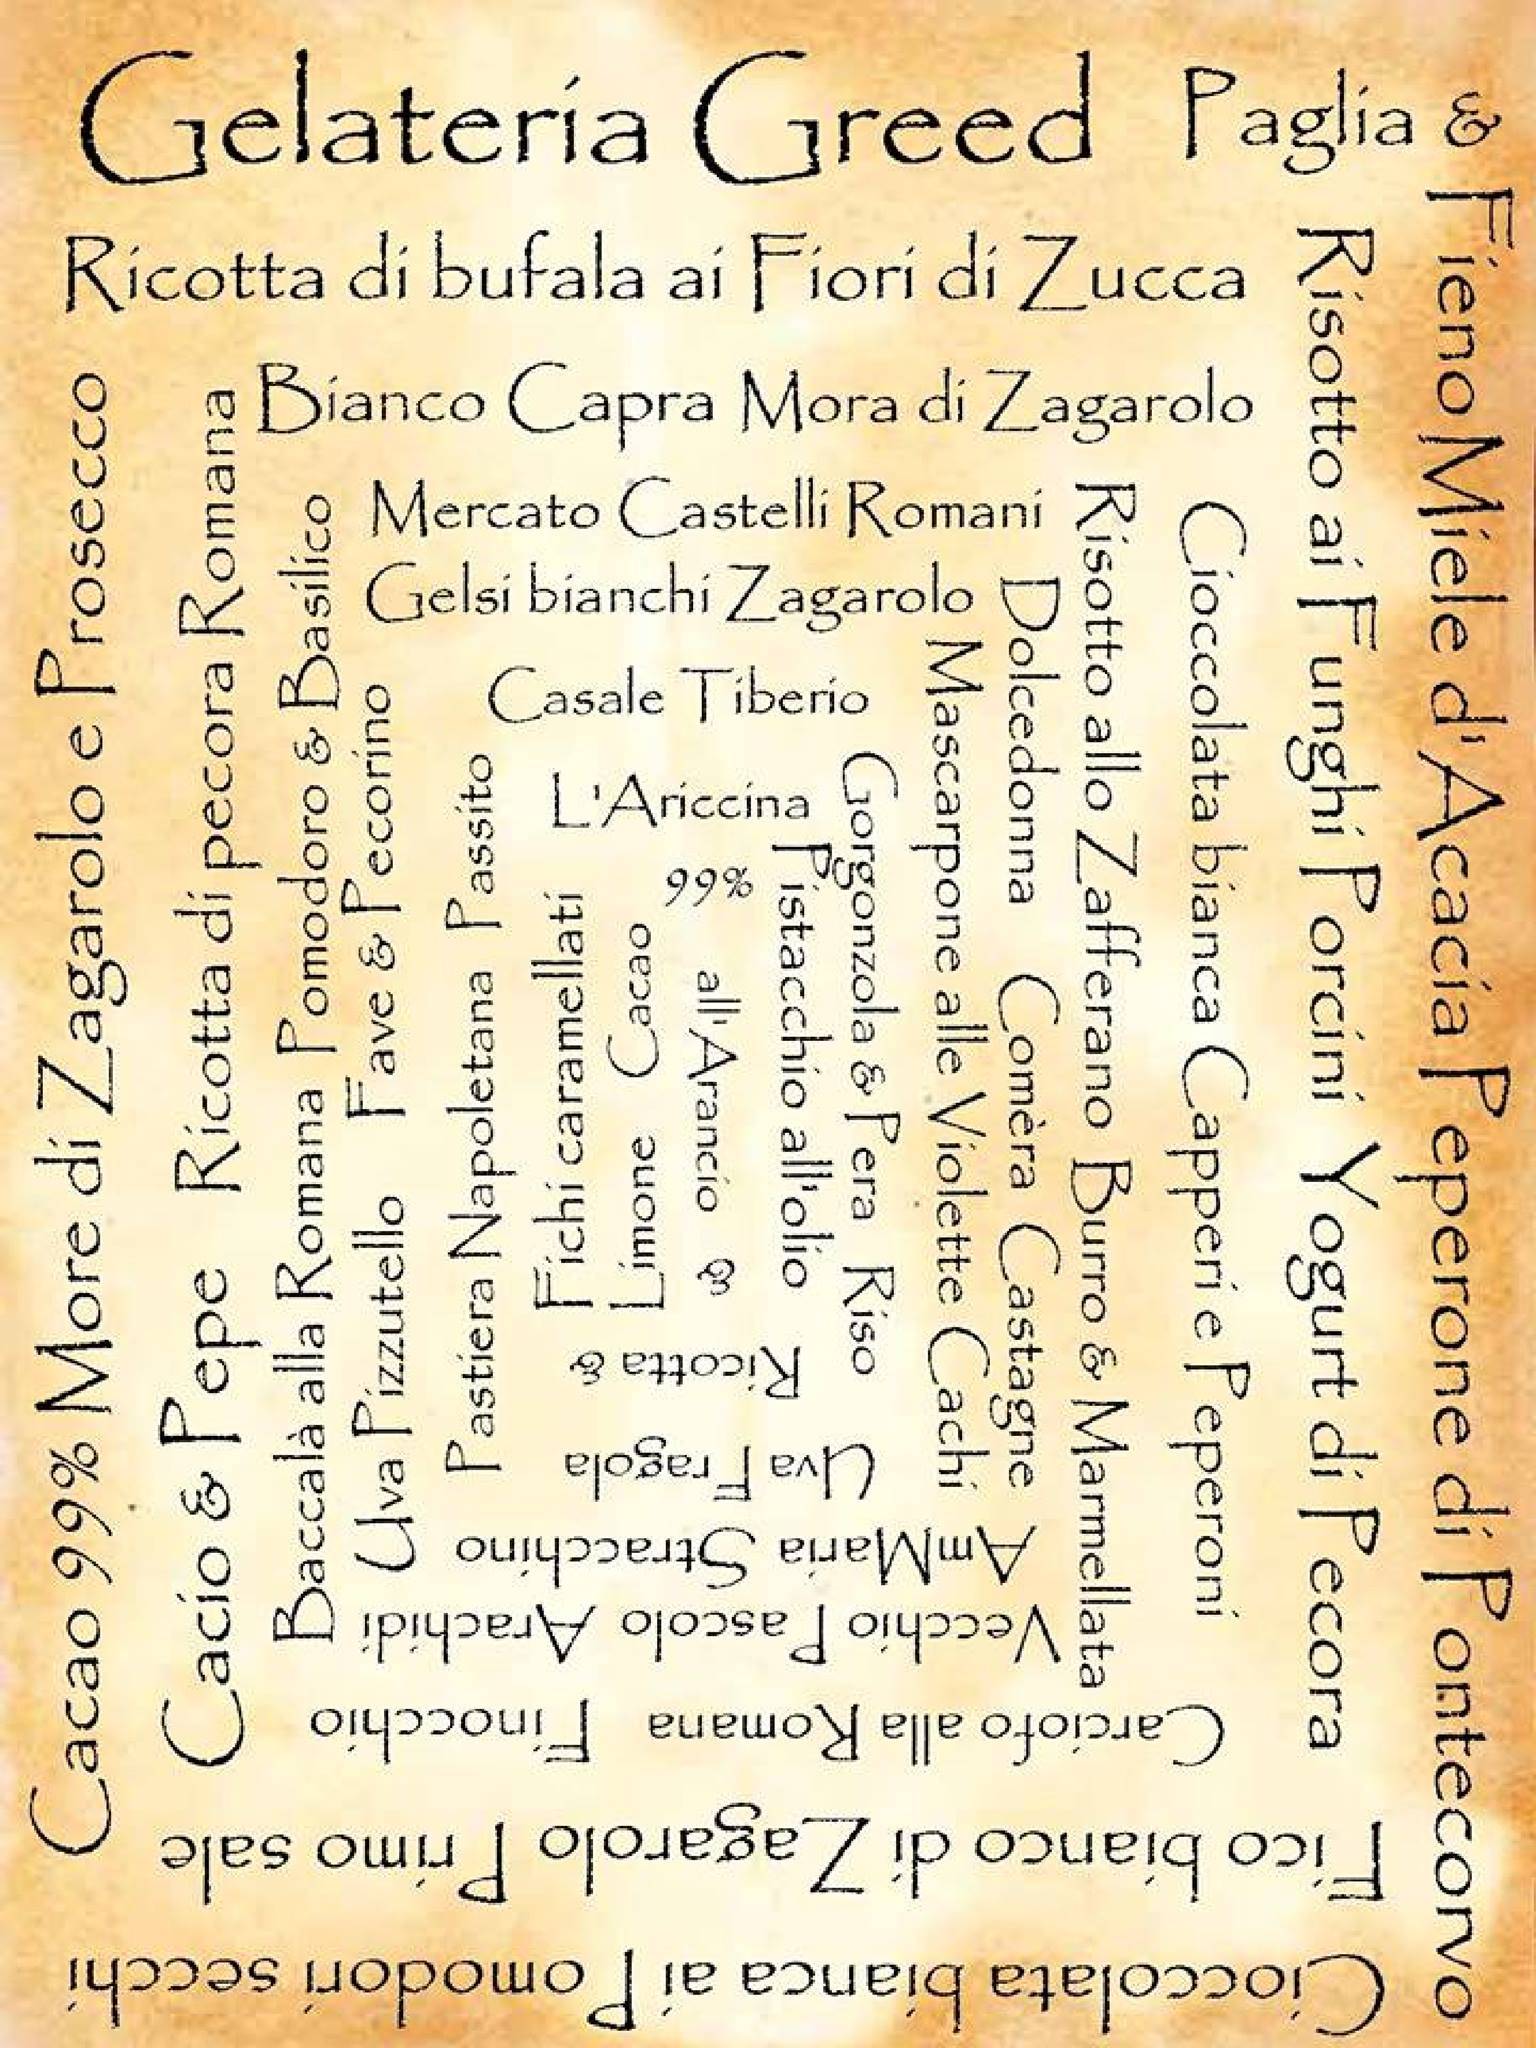 Gelateria Greed Paglia &
Fieno Miele d'Acacia Peperone di Pontecorvo
Cioccolata bianca ai Pomodori secchi
Cacao 99% More di Zagarolo e Prosecco
Ricotta di bufala ai Fiori di Zucca
Risotto ai Funghi Porcini Yogurt di Pecora
Fico bianco di Zagarolo Primo sale
Cacio & Pepe Ricotta di pecora Romana
Bianco Capra Mora di Zagarolo
Cioccolata bianca Capperi e Peperoni
Carciofo alla Romana Finocchio
Baccalà alla Romana Pomodoro & Basilico
Mercato Castelli Romani
Risotto allo Zafferano Burro & Marmellata
Vecchio Pascolo Arachidi
Uva Pizzutello Fave & Pecorino
Gelsi bianchi Zagarolo
Dolcedonna Comèra Castagne
AmMaria Stracchino
Pastiera Napoletana Passito
Casale Tiberio
Mascarpone alle Violette Cachi
Uva Fragola
Fichi caramellati
L'Ariccina
Gorgonzola & Pera Riso
Ricotta &
Limone Cacao
99%
Pistacchio all'olio
all'Arancio &